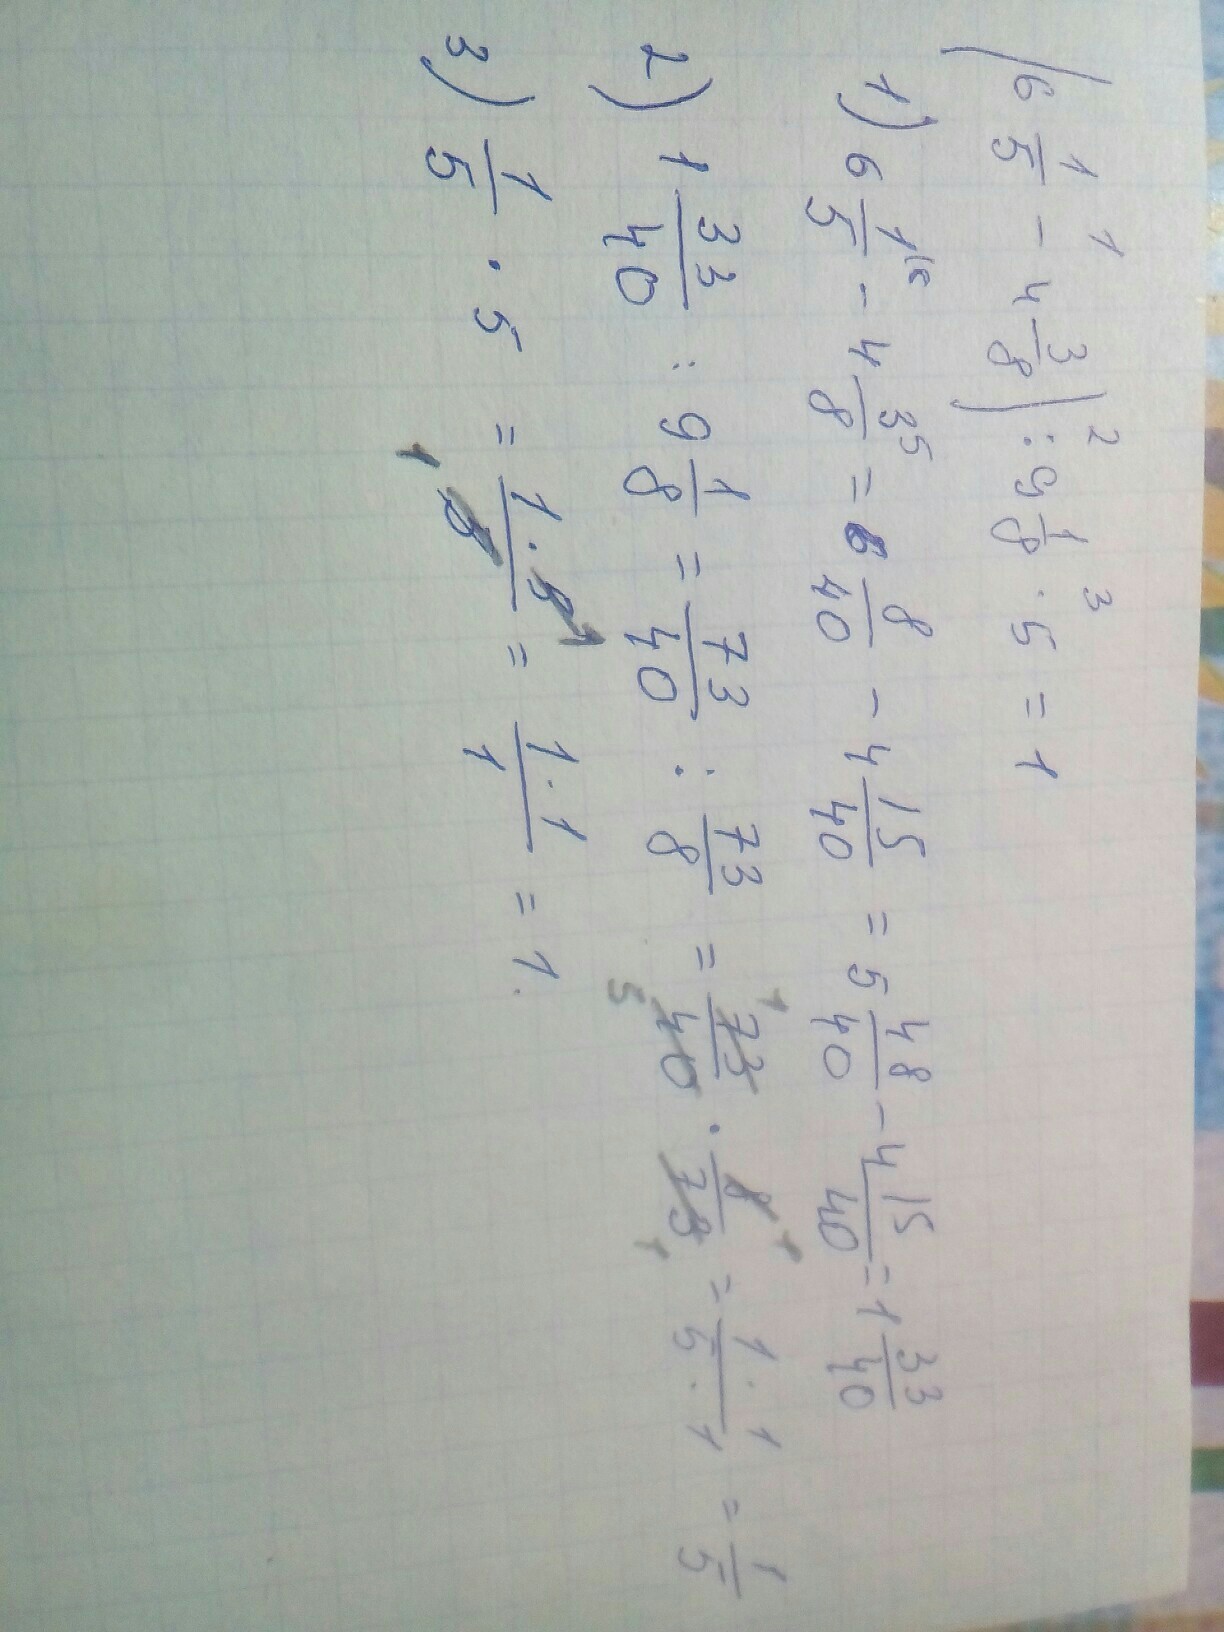 1 2 3
(6 1/5 - 4 3/8) : 9 1/8 · 5 = 1
1) 6 1/5 - 4 3/8 = 6 8/40 - 4 15/40 = 5 48/40 - 4 15/40 = 1 33/40
2) 1 33/40 : 9 1/8 = 73/40 : 73/8 = 73/40 · 8/73 = 1·1/5·1 = 1/5
3) 1/5 · 5 = 1·5/5 = 1·1/1 = 1.